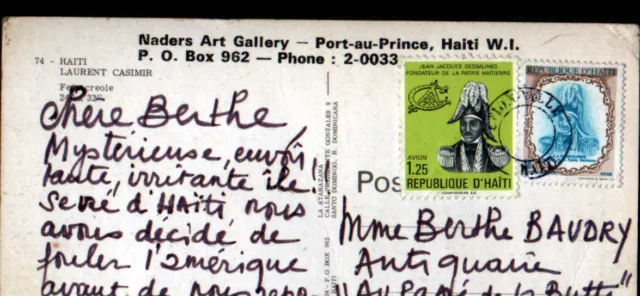 Naders Art Gallery — Port-au-Prince, Haiti W.I.
P. O. Box 962 — Phone : 2-0033
74 - HAITI
LAURENT CASIMIR
creole
chère Berthe
Mystérieuse, envoû
tante, irritante île
d'HAITI nous
avons décidé de
fouler l'amérique
avant de nous
LA ATARAZANA
SANTO DOMINGO, R. DOMINICANA
P.O BOX 962
Pos
JEAN-JACQUES DESSALINES
FONDATEUR DE LA PATRIE HAITIENNE
AVION
1.25
REPUBLIQUE D'HAÏTI
REPUBLIQUE D'HAITI
Mme Berthe BAUDRY
Antiquaire